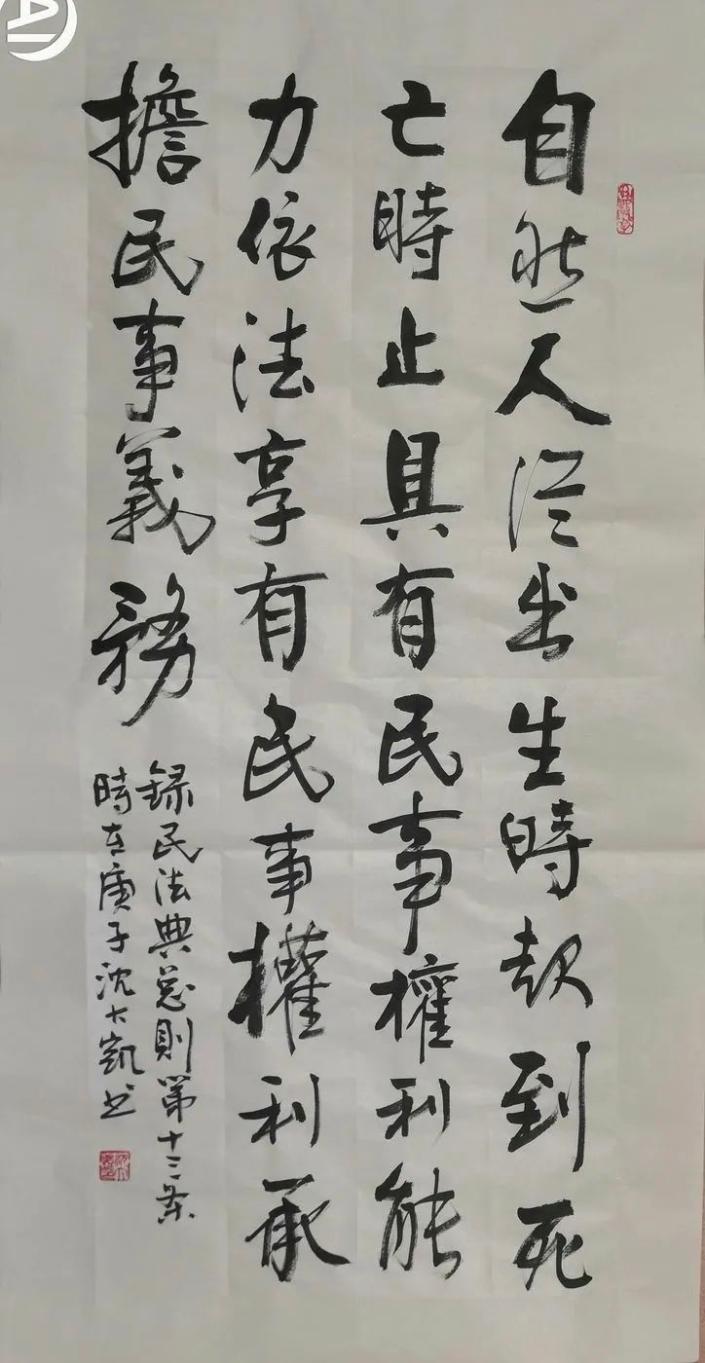 自然人从出生時起到死
亡時止具有民事權利能
力依法享有民事權利承
擔民事義務
録民法典总則第十三条
時在庚子沈大凱书